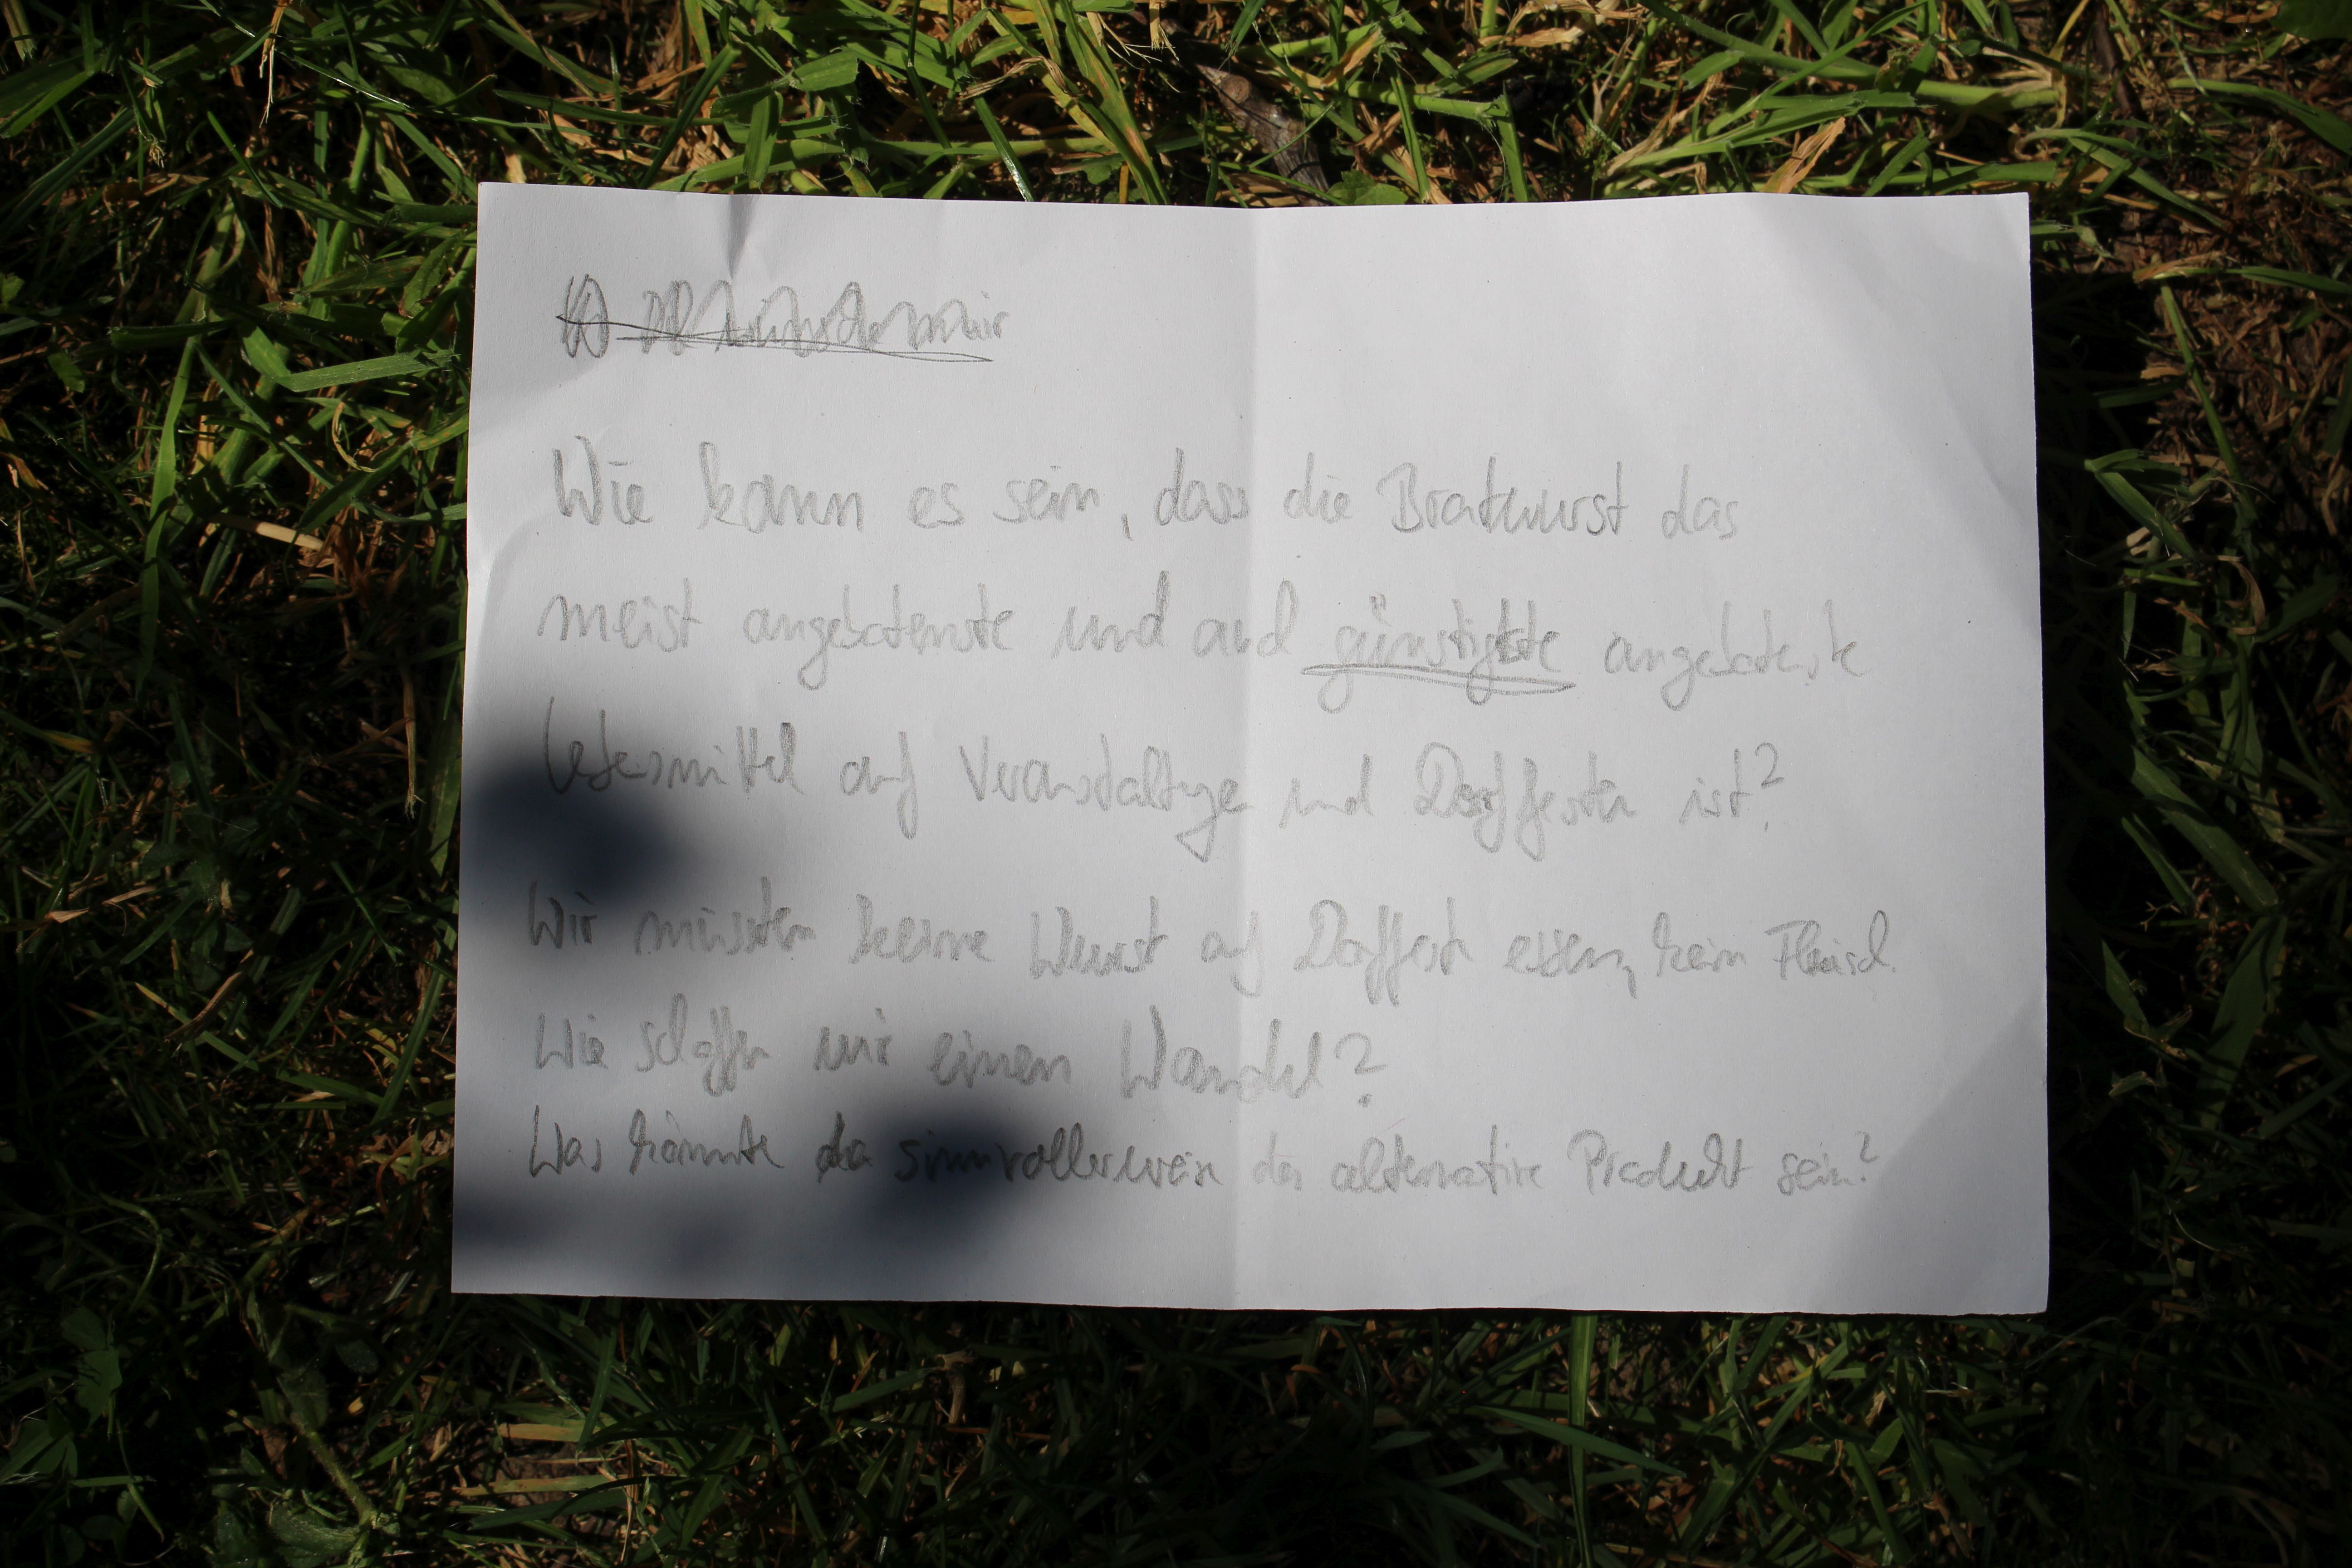 Wie kann es sein, dass die Bratwurst das
meist angebotenste und auch günstigste angebotenste
Lebensmittel auf Veranstaltungen und Dorffesten ist?
Wir müssten keine Wurst auf Dorffesten essen, kein Fleisch.
Wie schaffen wir einen Wandel?
Was könnte da sinnvollerweise das alternative Produkt sein?